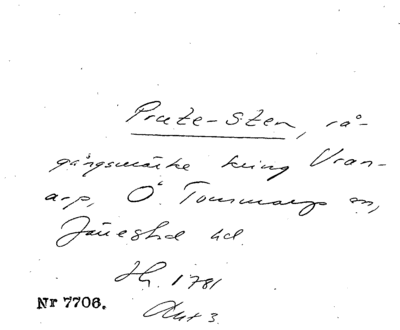 Prute-Sten, rå-
gångsmärke kring Vran-
arp, Ö. Tommarps sn,
Järrestad hd.
Hh. 1781
Akt 3.
Nr 7706.